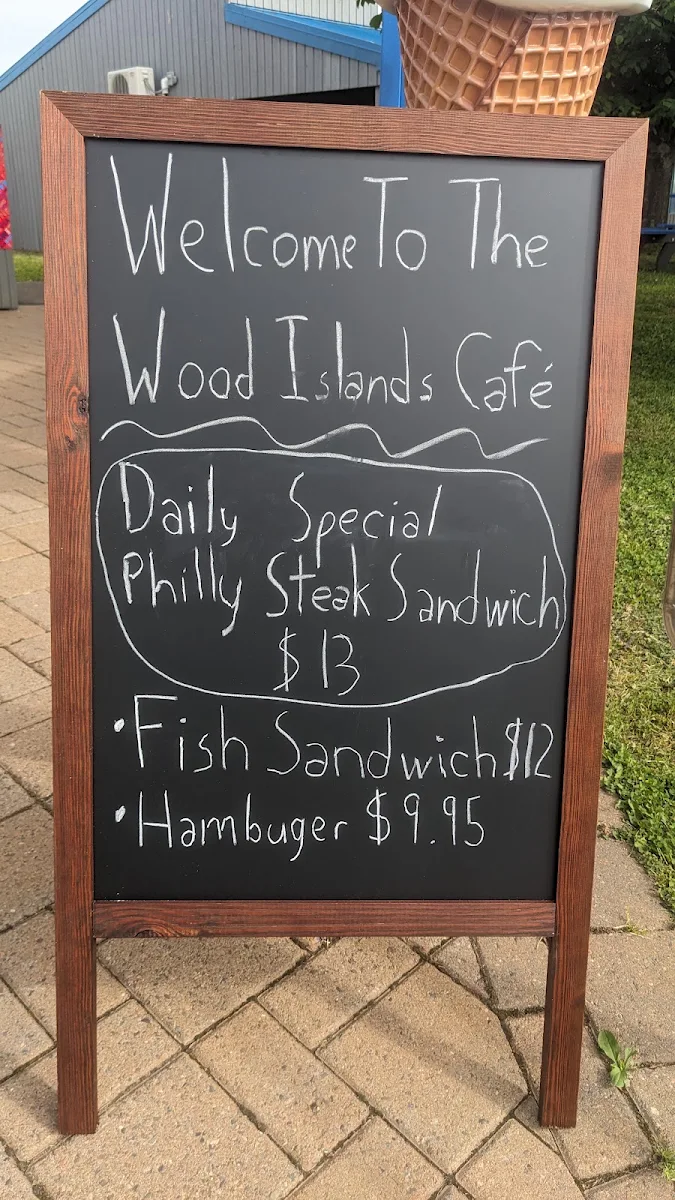 Welcome To The
Wood Islands Café
Daily Special
Philly Steak Sandwich
$13
• Fish Sandwich $12
• Hambuger $9.95